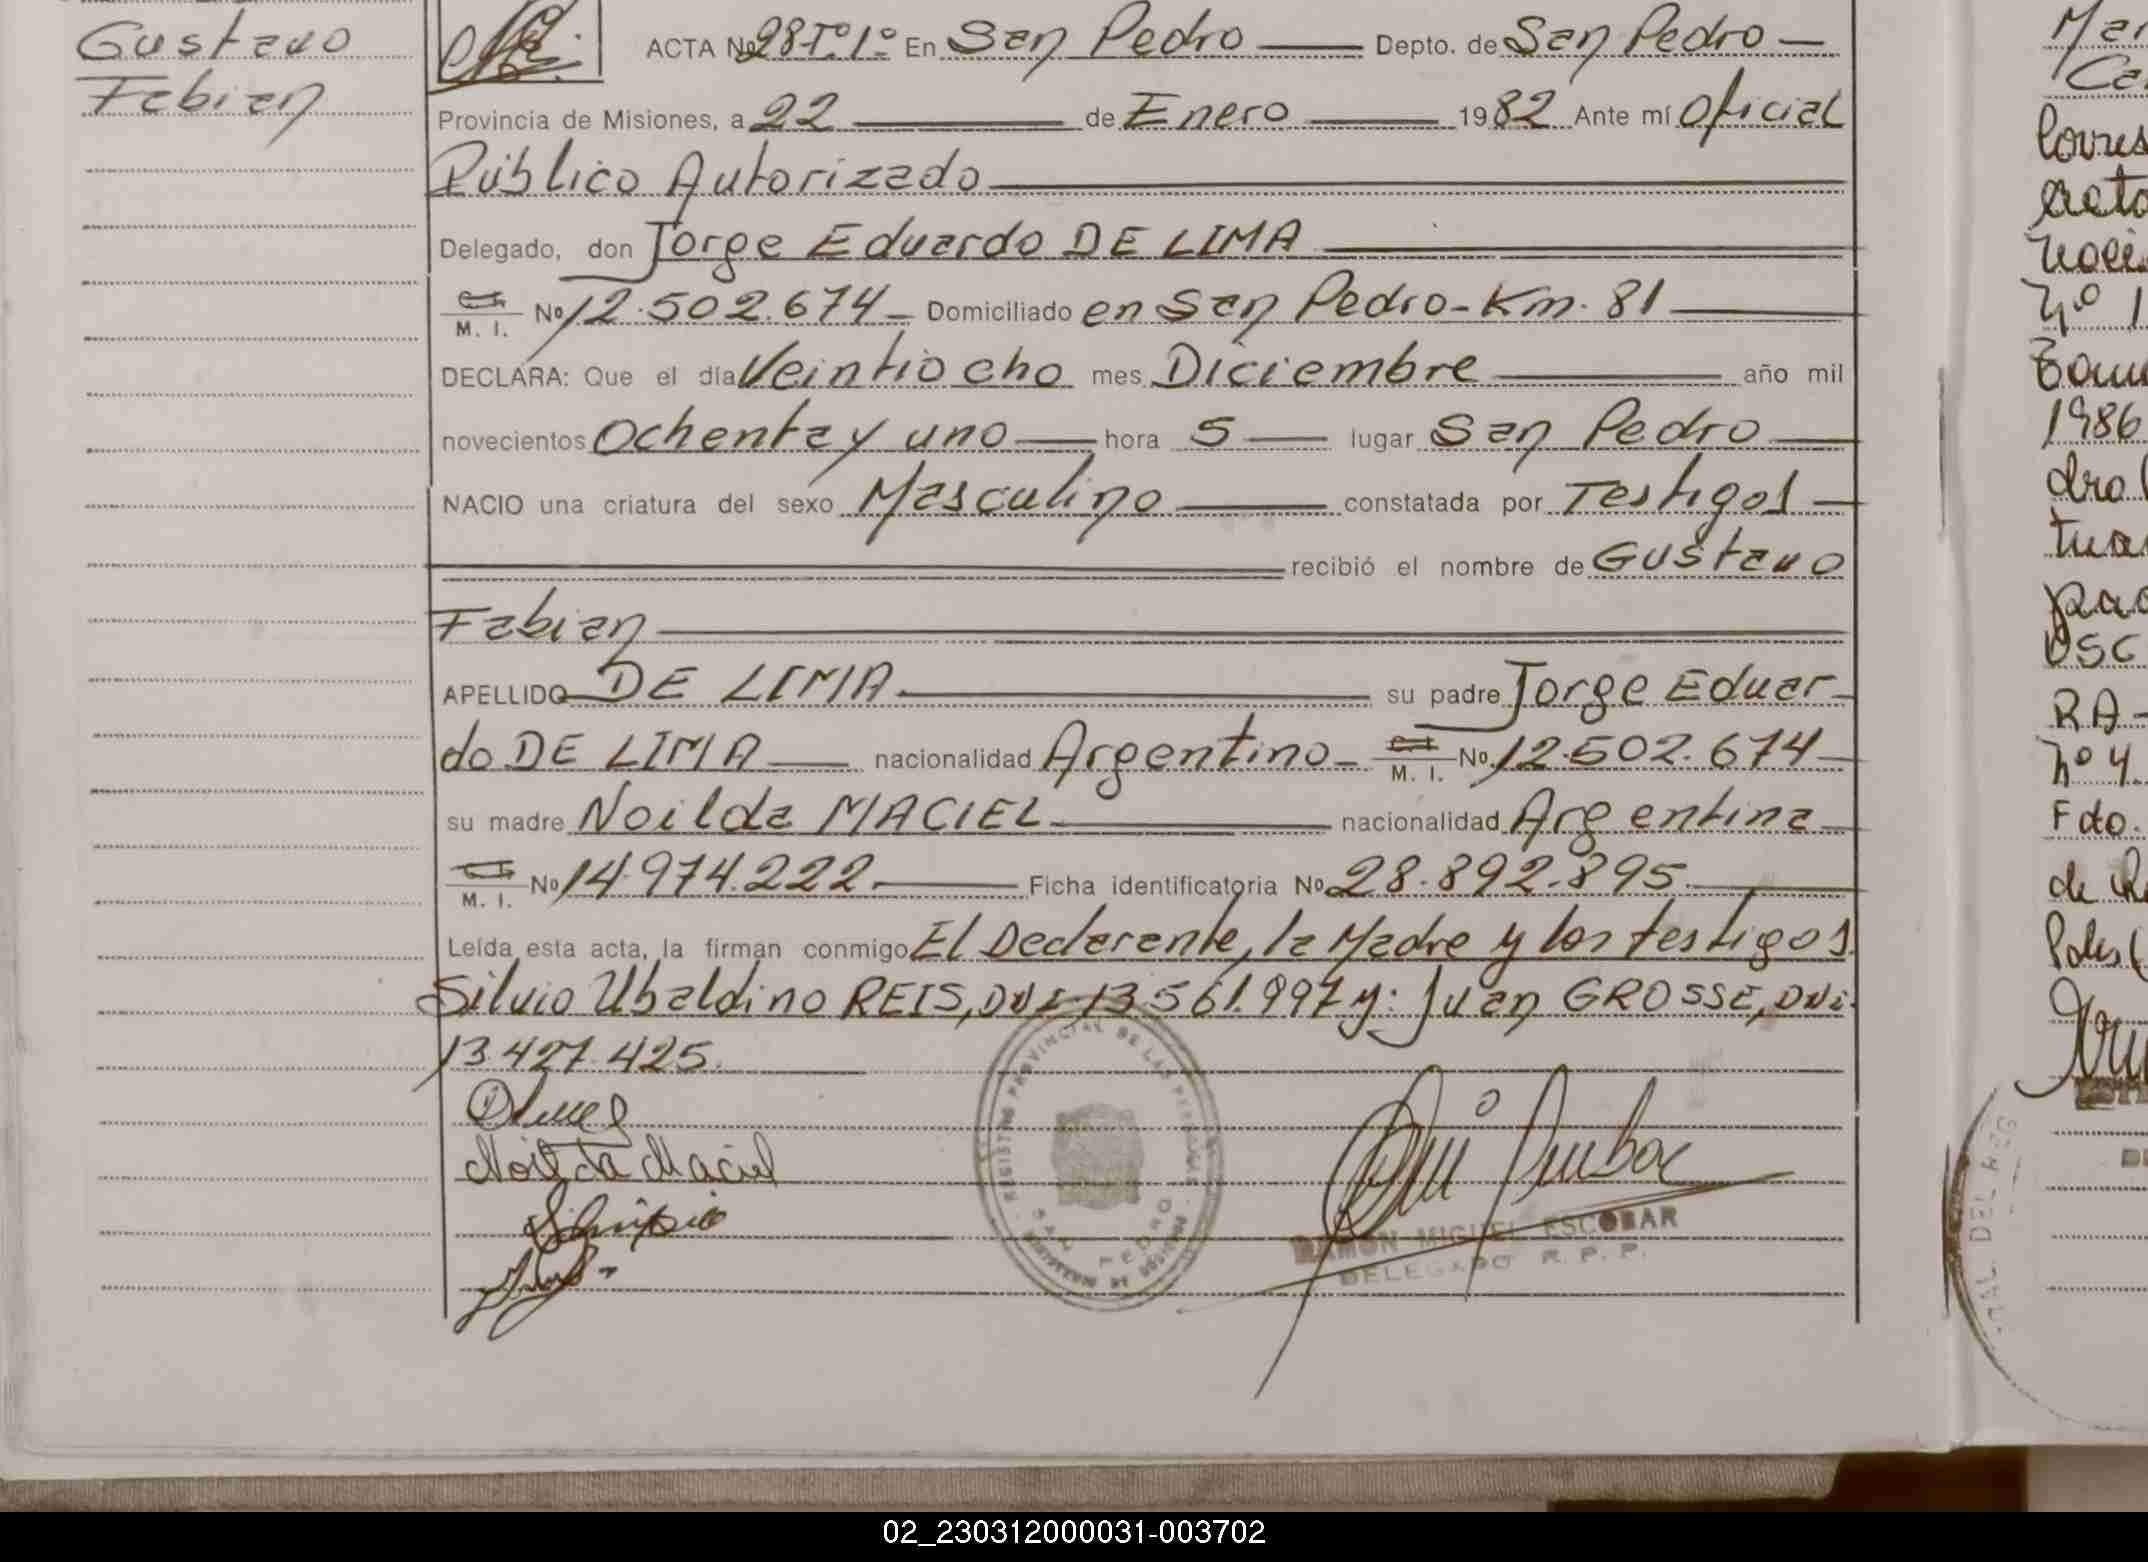 Gustavo
Fabian
ACTA Nº 28 Tº 1º En San Pedro Depto. de San Pedro
Provincia de Misiones, a 22 de Enero 1982 Ante mí Oficial
Público Autorizado
Delegado, don Jorge Eduardo DE LIMA
M. I. Nº 12.502.674 Domiciliado en San Pedro - Km. 81
DECLARA: Que el día Veintiocho mes Diciembre año mil
novecientos Ochenta y uno hora 5 lugar San Pedro
NACIO una criatura del sexo Masculino constatada por Testigos
recibió el nombre de Gustavo
Fabian
APELLIDO DE LIMA su padre Jorge Eduar
do DE LIMA nacionalidad Argentino M. I. Nº 12.502.674
su madre Noilda MACIEL nacionalidad Argentina
M. I. Nº 14.974.222 Ficha identificatoria Nº 28.892.895
Leída esta acta, la firman conmigo El Declarante, la Madre y los testigos
Silvio Ubaldino REIS, DNI 13.561.997 y: Juan GROSSE, DNi.
13.427.425.
Noilda Maciel
REGISTRO PROVINCIAL DE LAS PERSONAS
SAN PEDRO
RAMON MIGUEL ESCOBAR
DELEGADO R. P. P.
Nº 1
1986
RA-
nº 4.
Fdo.
02_230312000031-003702